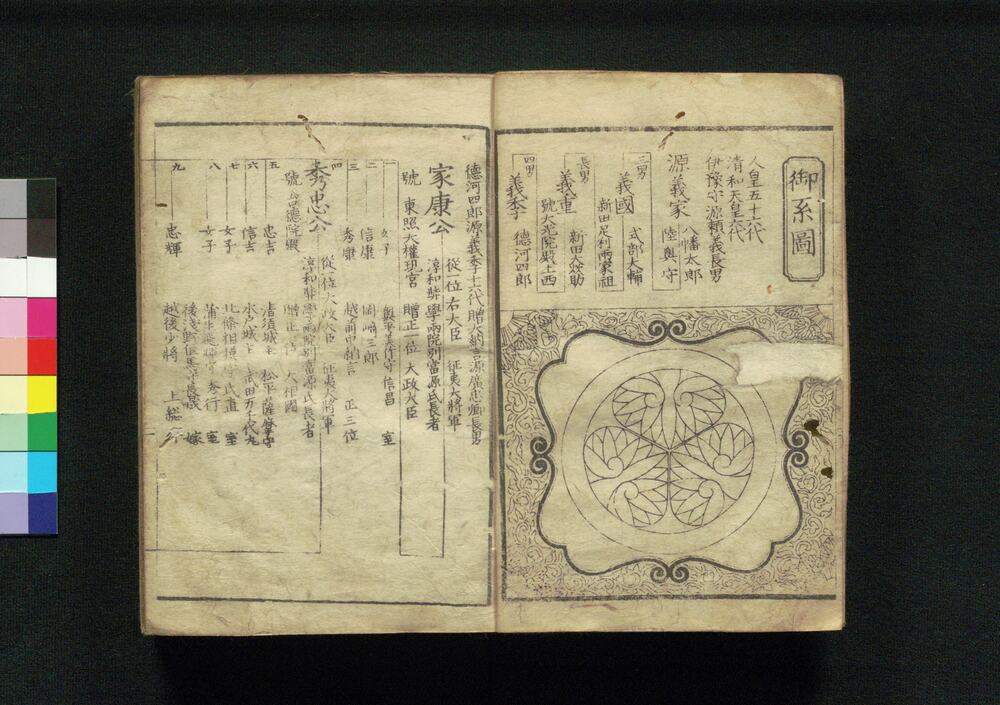 御系圖
人皇五十六代
清和天皇六代
伊豫守源頼義長男
源義家 八幡太郎
陸奥守
三男
義國 式部大輔
新田足利兩家祖
長男
義重 新田大炊助
號大光院殿上西
四男
義季 德河四郎
德河四郎源義季十六代贈大納言源廣忠卿長男
從一位右大臣 征夷大將軍
家康公 淳和弉學兩院別當源氏長者
號 東照大權現宮 贈正一位 大政大臣
一 女子 奥平美作守信昌 室
二 信康 岡崎三郎
三 秀康 越前中納言 正三位
四 從一位大政大臣 征夷大將軍
秀忠公 淳和弉學兩院別當源氏長者
號台德院殿 贈正一位 大相國
五 忠吉 清須城主 松平薩摩守
六 信吉 水戸城主 武田万千代丸
七 女子 北條相摸守氏直 室
八 女子 蒲生飛騨守秀行 室
後浅野但馬守長晟 嫁
九 忠輝 越後少將 上総介